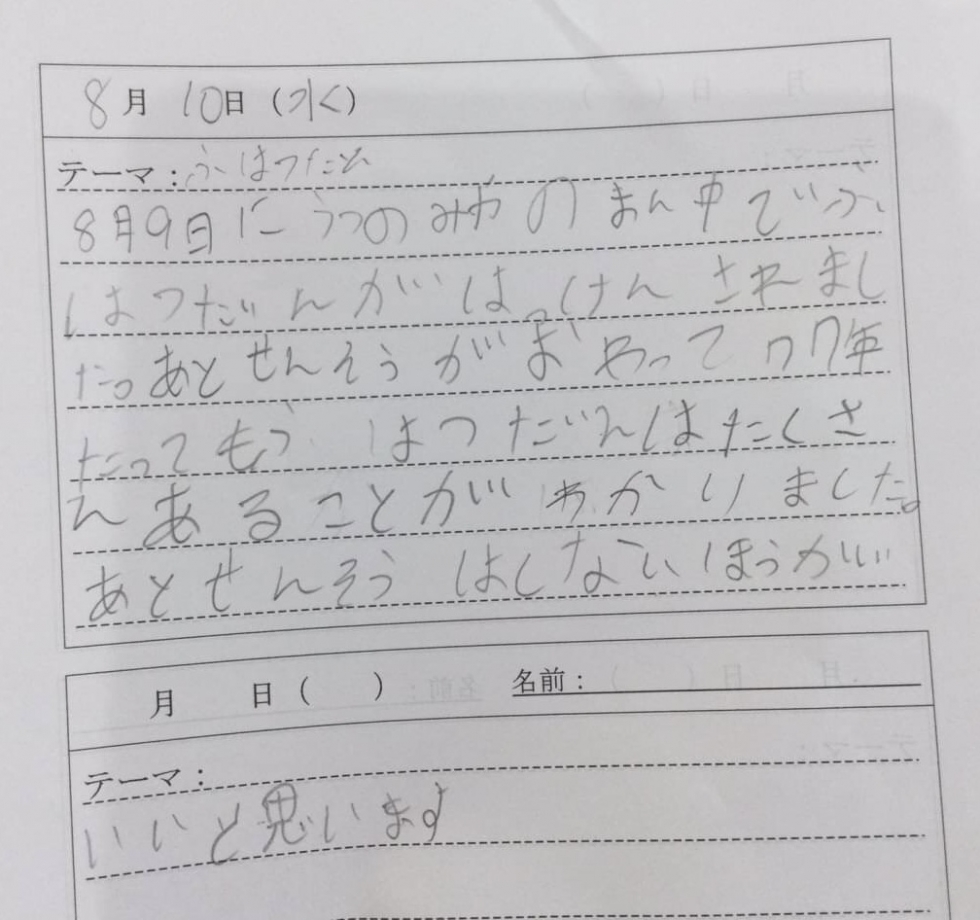 8月 10日(水)
テーマ:ふはつだん
8月9日に うつのみやの まん中でふ
はつだんがはっけんされまし
た。あとせんそうがおわって77年
たってもう はつだんはたくさ
んあることがわかりました。
あとせんそうはしないほうがい
月 日( ) 名前:
テーマ:
いいと思います